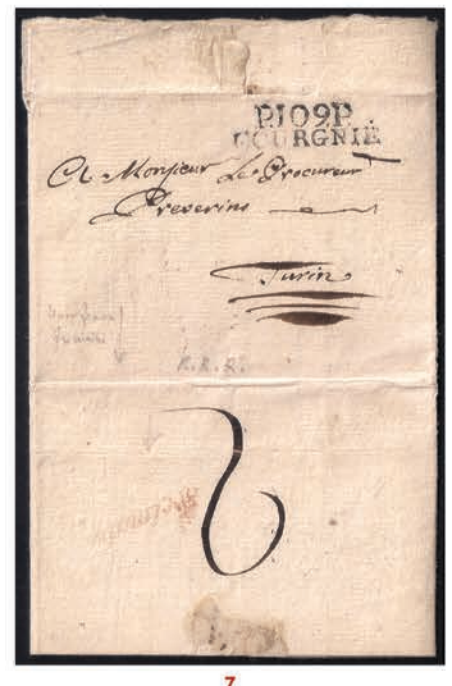 P.109.P.
COURGNIÉ
A Monsieur Le Procureur
Preverino
Turin
R.R.R.
2
7